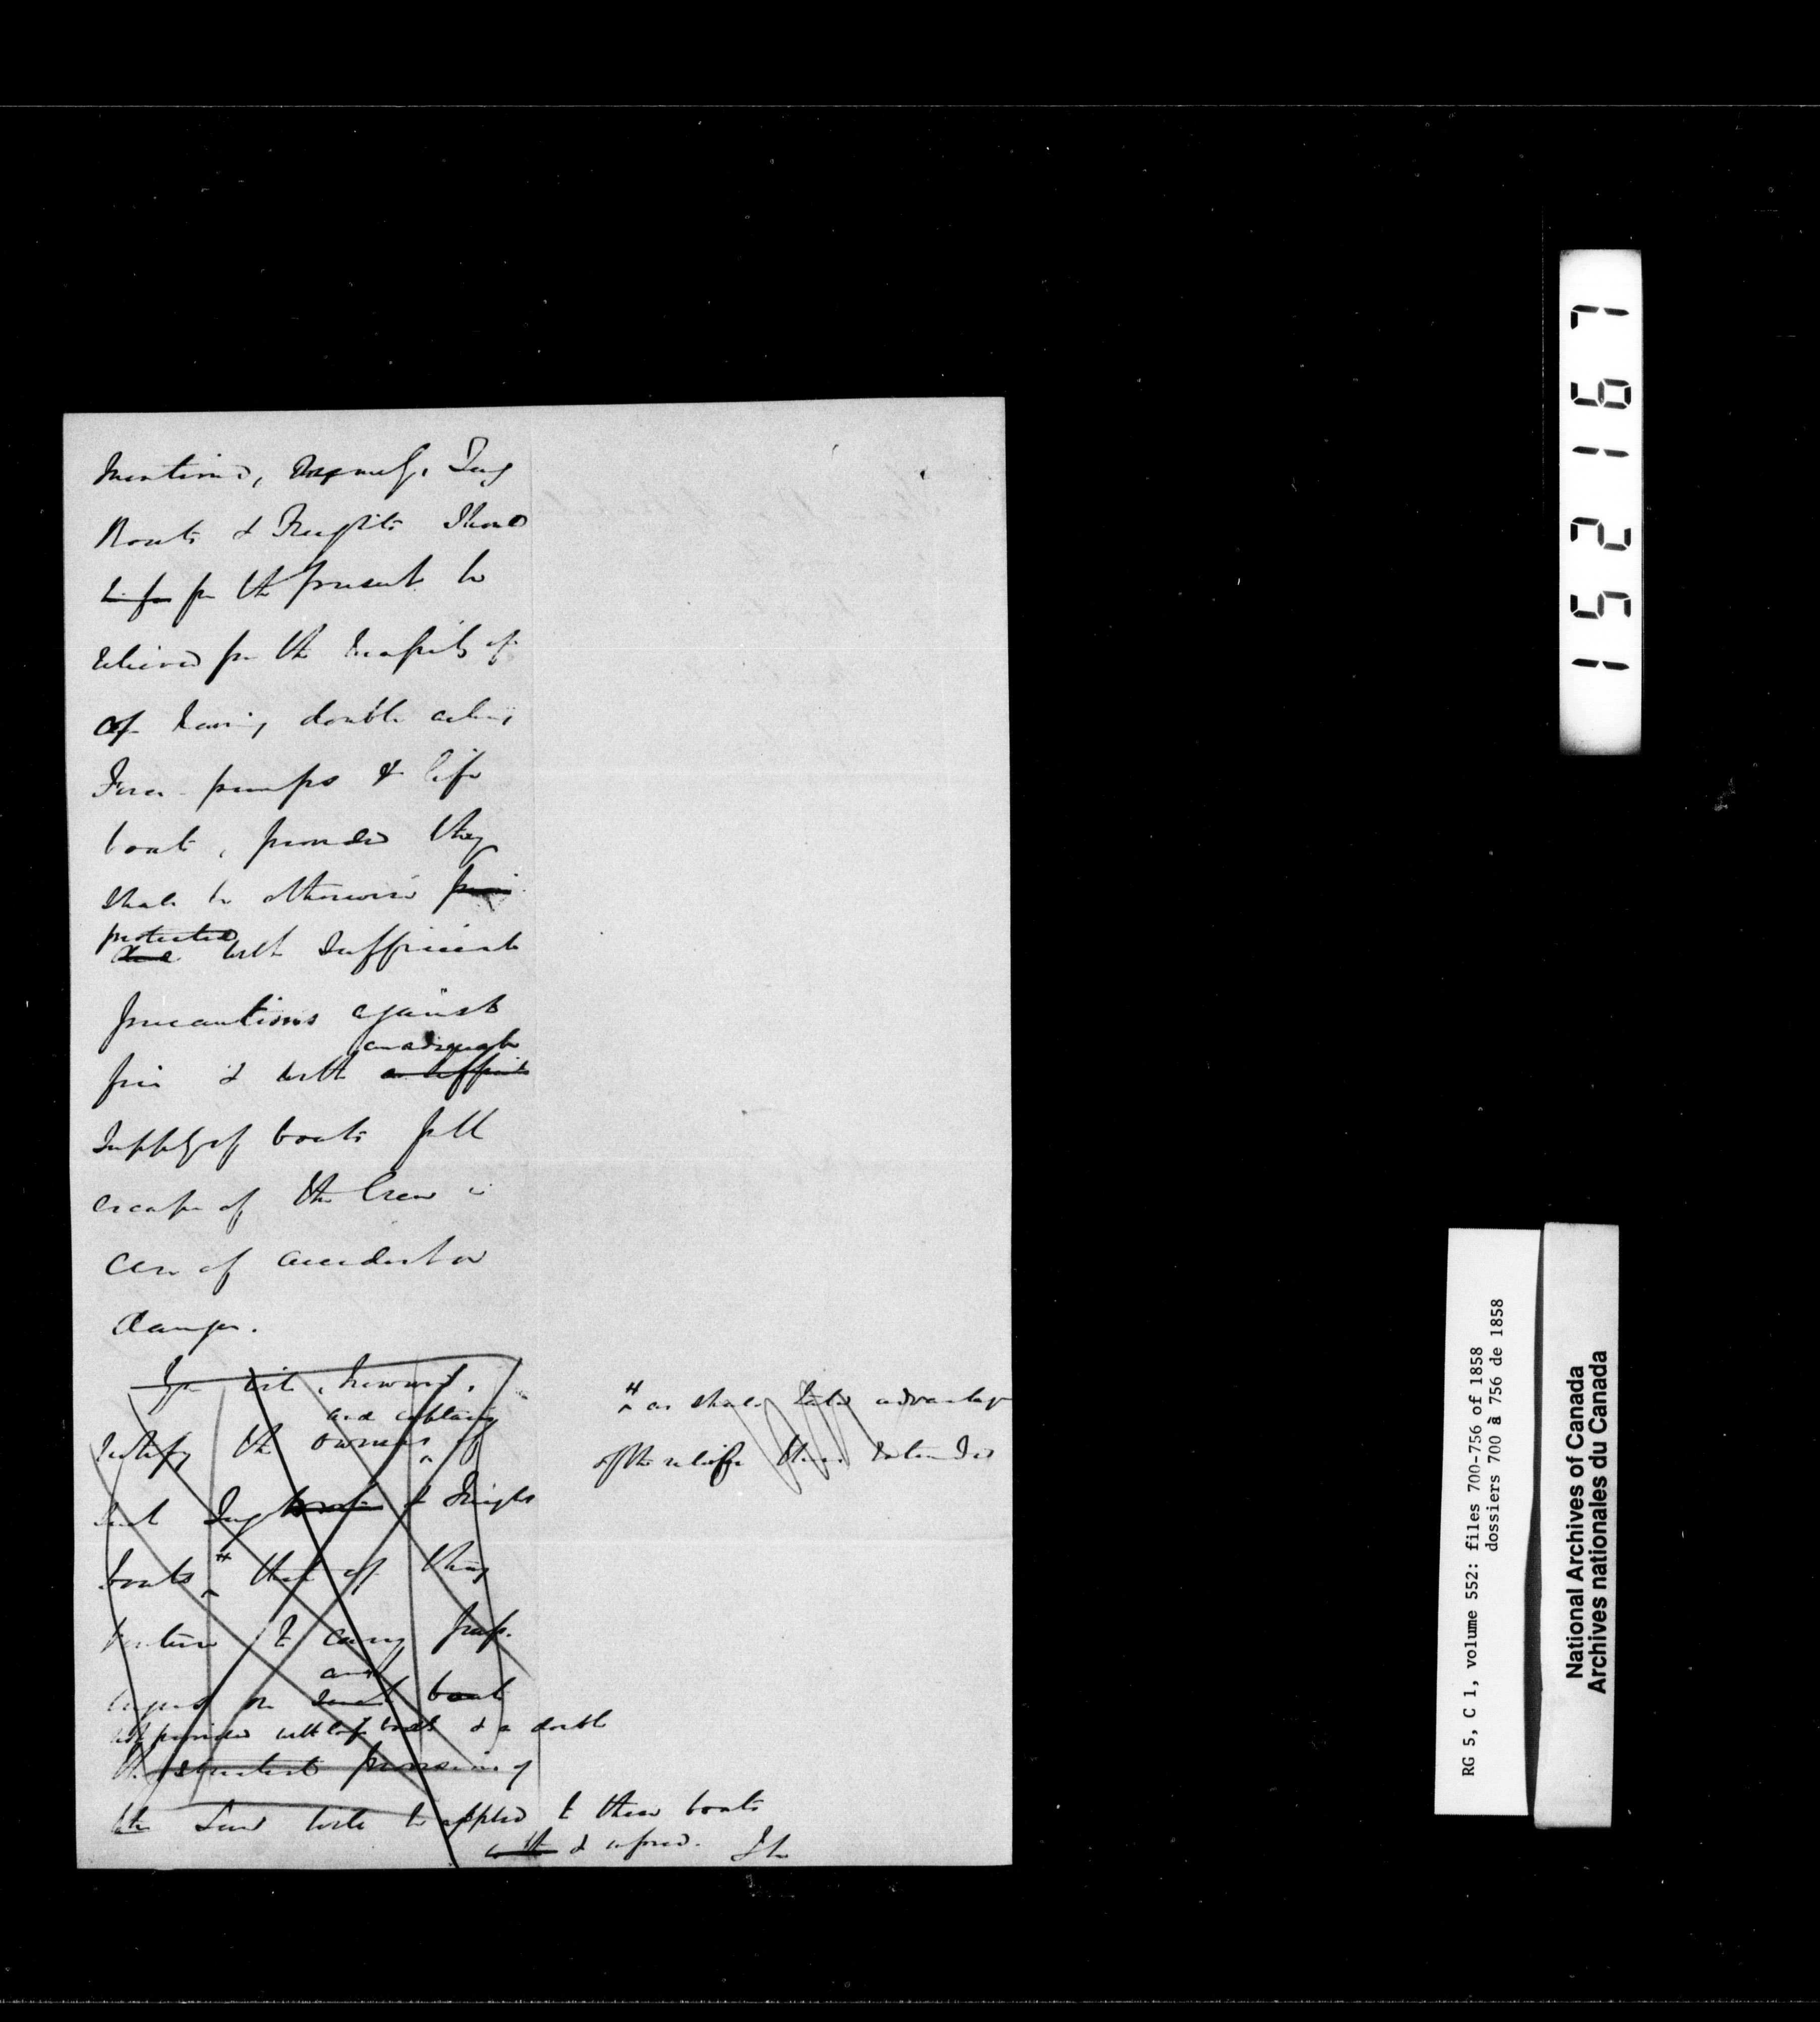 mentioned, namely, Tug
Boats & Freights should
for the present be
relieved for the necessity of
of having double acting
Force pumps & life
boats, provided they
shall be otherwise
protected
with sufficient
precautions against
an adequate
fire & with a sufficient
supply of boats for the
escape of the Crew in
case of accident or
danger.
You will, however,
and captains
notify the owners of
such Tug boats & Freight
boats # that if they
venture to carry pass-
engers on such boats
not provided with life boats & a double
the strictest provisions of
the Law will be applied to these boats
& enforced. The
# as shall take advantage
of the relief thus extended
152167
RG 5, C 1, volume 552: files 700-756 of 1858
dossiers 700 à 756 de 1858
National Archives of Canada
Archives nationales du Canada